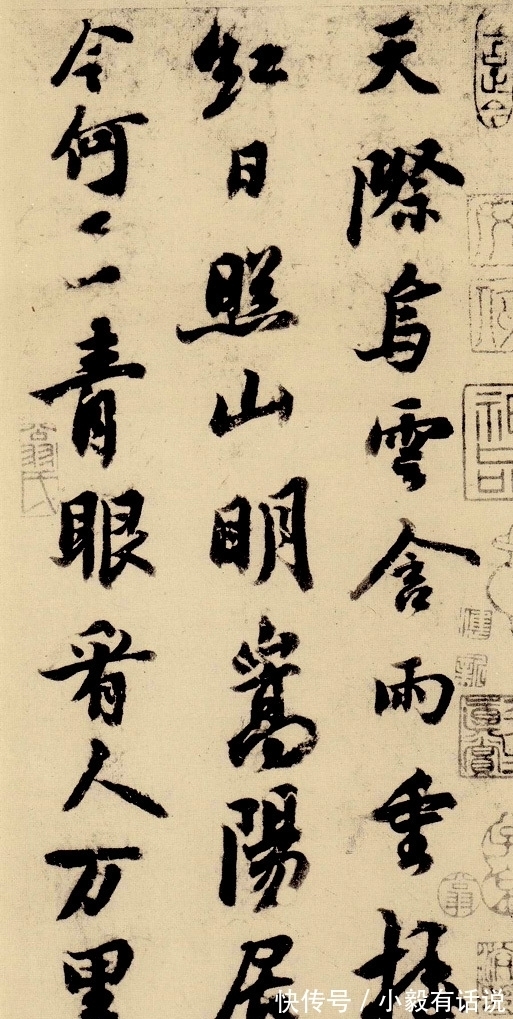 天際烏雲含雨重
紅日照山明嵩陽居
今何在青眼看人万里
快传号 / 小毅有话说